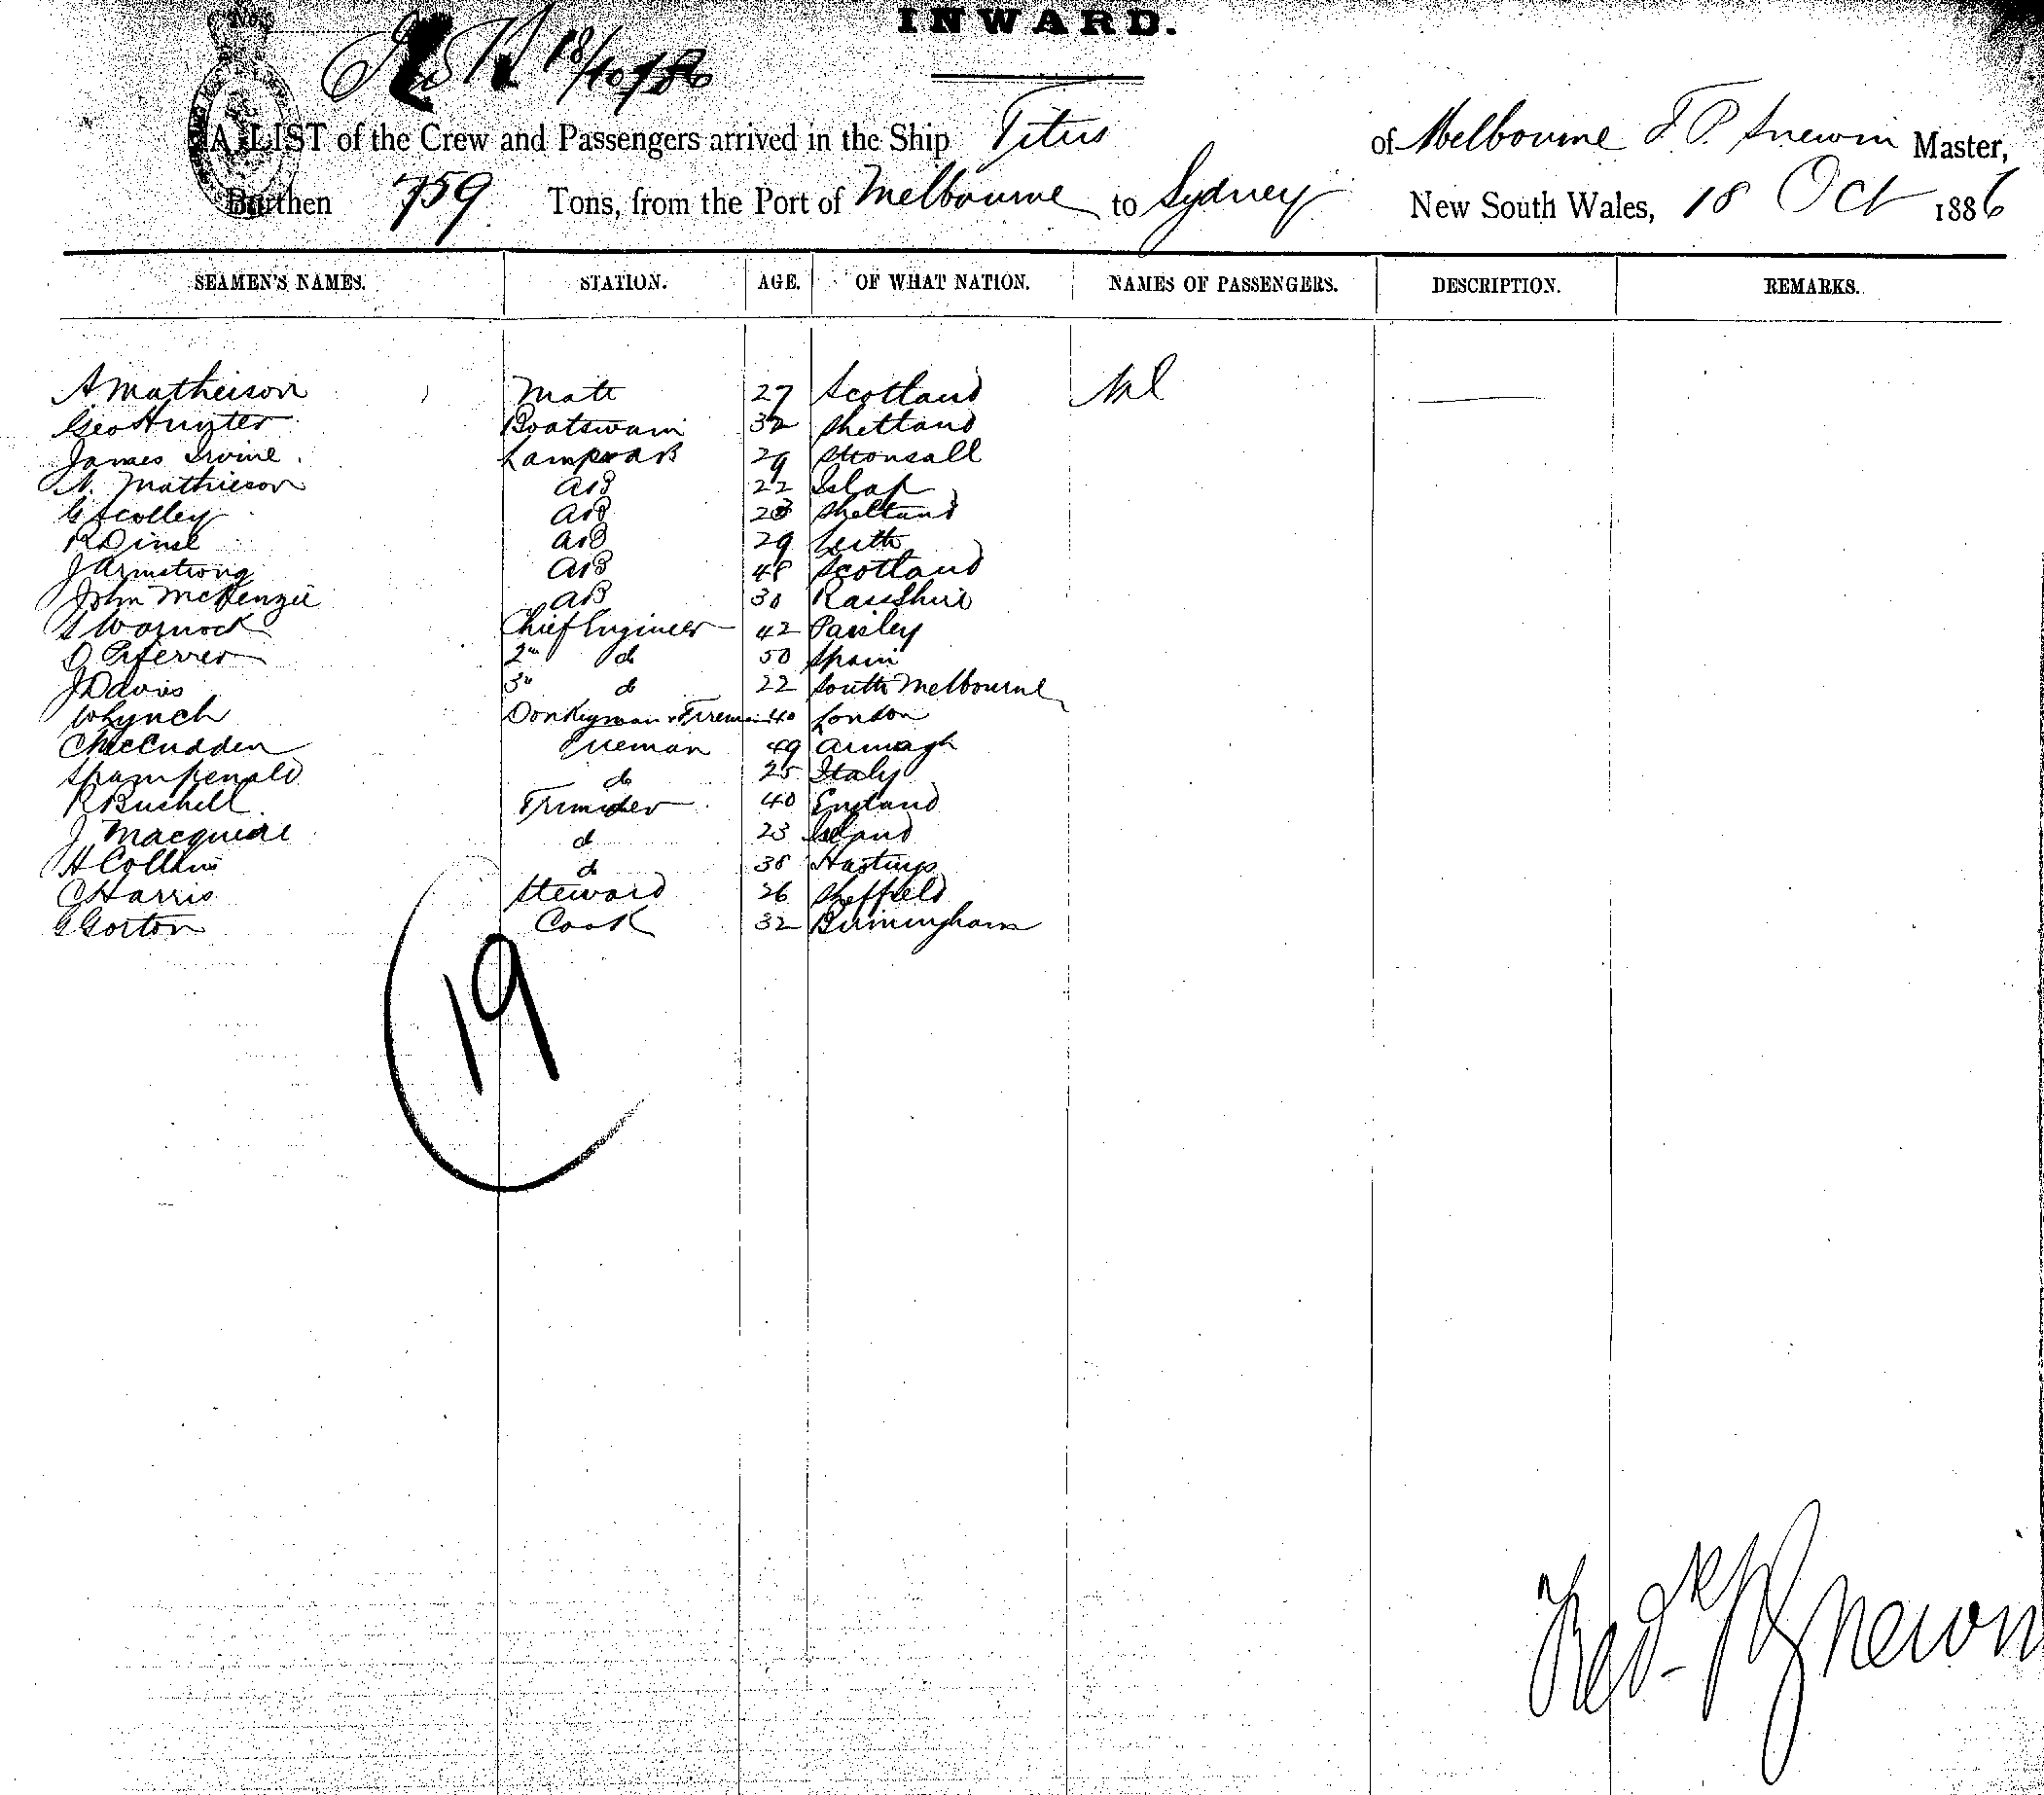 No.
INWARD.
18/10/86
A LIST of the Crew and Passengers arrived in the Ship Titus of Melbourne F. P. Snewin Master,
Burthen 759 Tons, from the Port of Melbourne to Sydney New South Wales, 18 Oct 1886
SEAMEN'S NAMES. STATION. AGE. OF WHAT NATION. NAMES OF PASSENGERS. DESCRIPTION. REMARKS.
A Matheison Mate 27 Scotland Nil
Geo Hunter Boatswain 32 Shetland
James Irvine Lamps & AB 29 Stronsall
N. Mathieson AB 22 Islay
G Scolley AB 23 Shetland
R Dinse AB 29 Leith
J Armstrong AB 48 Scotland
John McKenzie AB 30 Rosshire
S Warnock Chief Engineer 42 Paisley
D 2nd do 50 Spain
J Davis 3rd do 22 South Melbourne
W Lynch Donkeyman & Fireman 40 London
C McCudden Fireman 49 Armagh
Spampenald do 25 Italy
R Bushell Trimmer 40 England
J Macquire do 23 Island
H Collins do 38 Hastings
C Harris Steward 26 Sheffield
G Gorton Cook 32 Birmingham
19
Fredk P Snewin